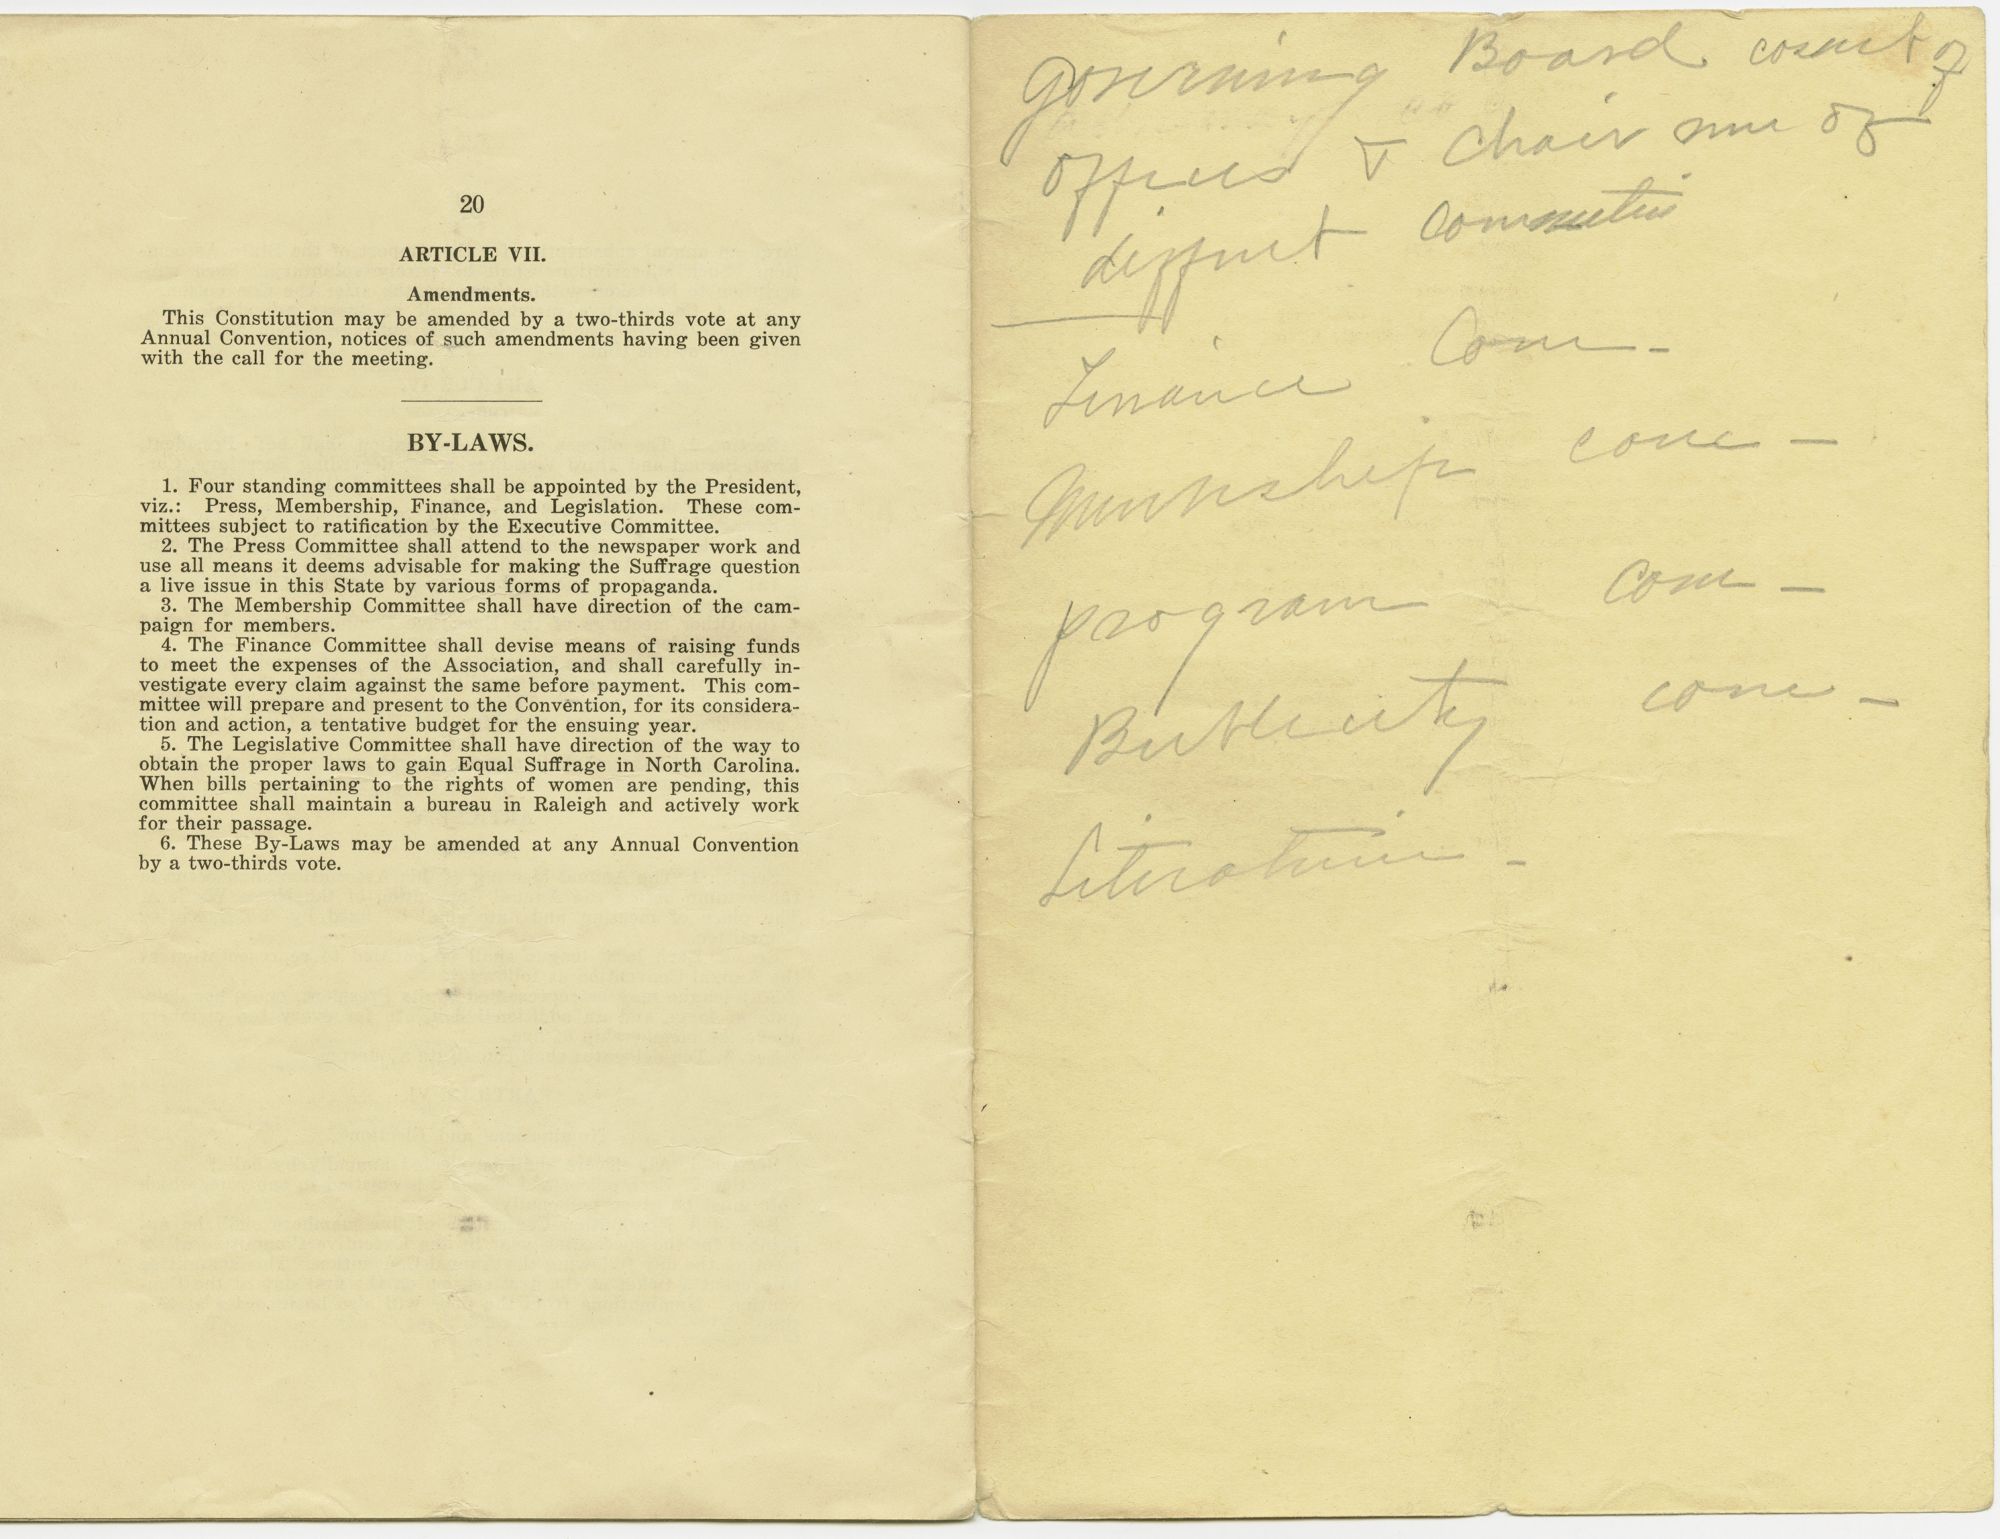 20
ARTICLE VII.
Amendments.
This Constitution may be amended by a two-thirds vote at any
Annual Convention, notices of such amendments having been given
with the call for the meeting.
BY-LAWS.
1. Four standing committees shall be appointed by the President,
viz.: Press, Membership, Finance, and Legislation. These com-
mittees subject to ratification by the Executive Committee.
2. The Press Committee shall attend to the newspaper work and
use all means it deems advisable for making the Suffrage question
a live issue in this State by various forms of propaganda.
3. The Membership Committee shall have direction of the cam-
paign for members.
4. The Finance Committee shall devise means of raising funds
to meet the expenses of the Association, and shall carefully in-
vestigate every claim against the same before payment. This com-
mittee will prepare and present to the Convention, for its considera-
tion and action, a tentative budget for the ensuing year.
5. The Legislative Committee shall have direction of the way to
obtain the proper laws to gain Equal Suffrage in North Carolina.
When bills pertaining to the rights of women are pending, this
committee shall maintain a bureau in Raleigh and actively work
for their passage.
6. These By-Laws may be amended at any Annual Convention
by a two-thirds vote.
Governing Board of
& chair men of
Finance Com-
com-
program com-
com-
Literature-